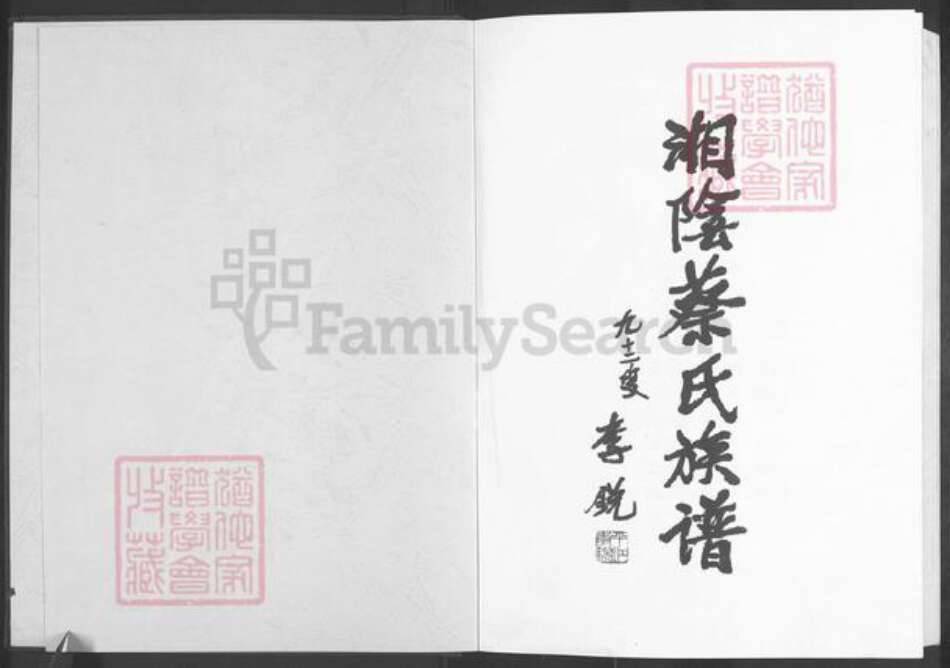 湘陰蔡氏族谱
九十二叟
李锐
猶他家
譜學會
收藏
猶他家
譜學會
收藏
FamilySearch